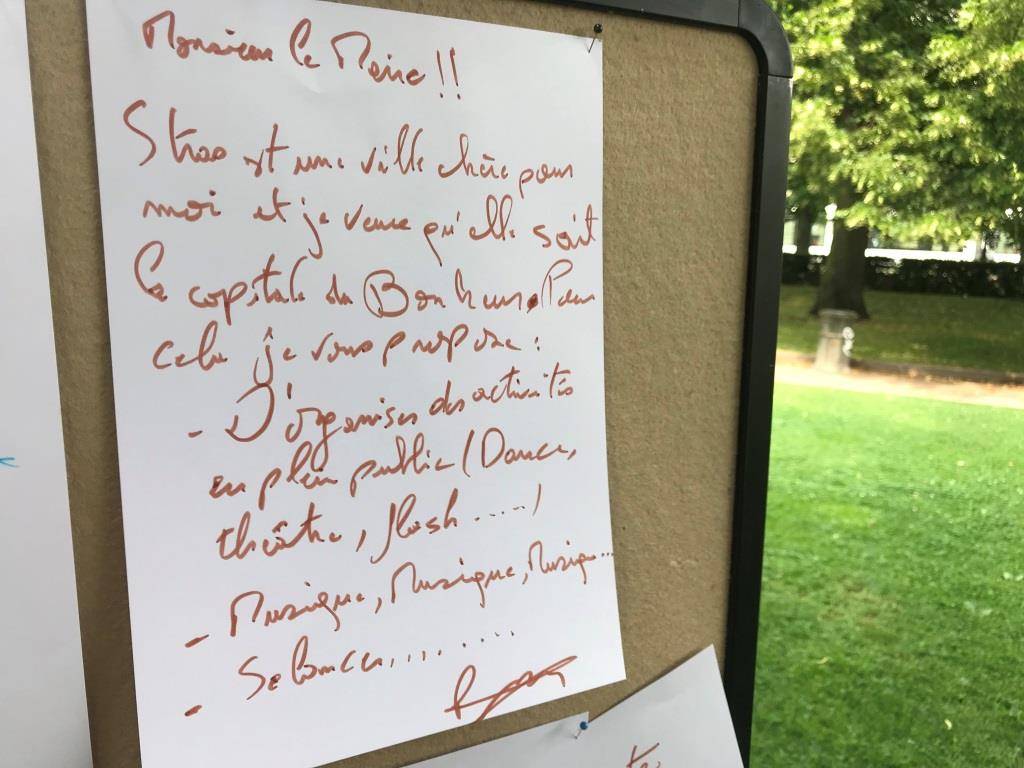 Monsieur le Maire !!
Stras est une ville chère pour
moi et je veux qu'elle soit
la capitale du Bonheur. Pour
cela je vous propose :
- D'organiser des activités
en plein public (Dance,
théâtre, flash .....)
- Musique, Musique, Musiq...
- Se